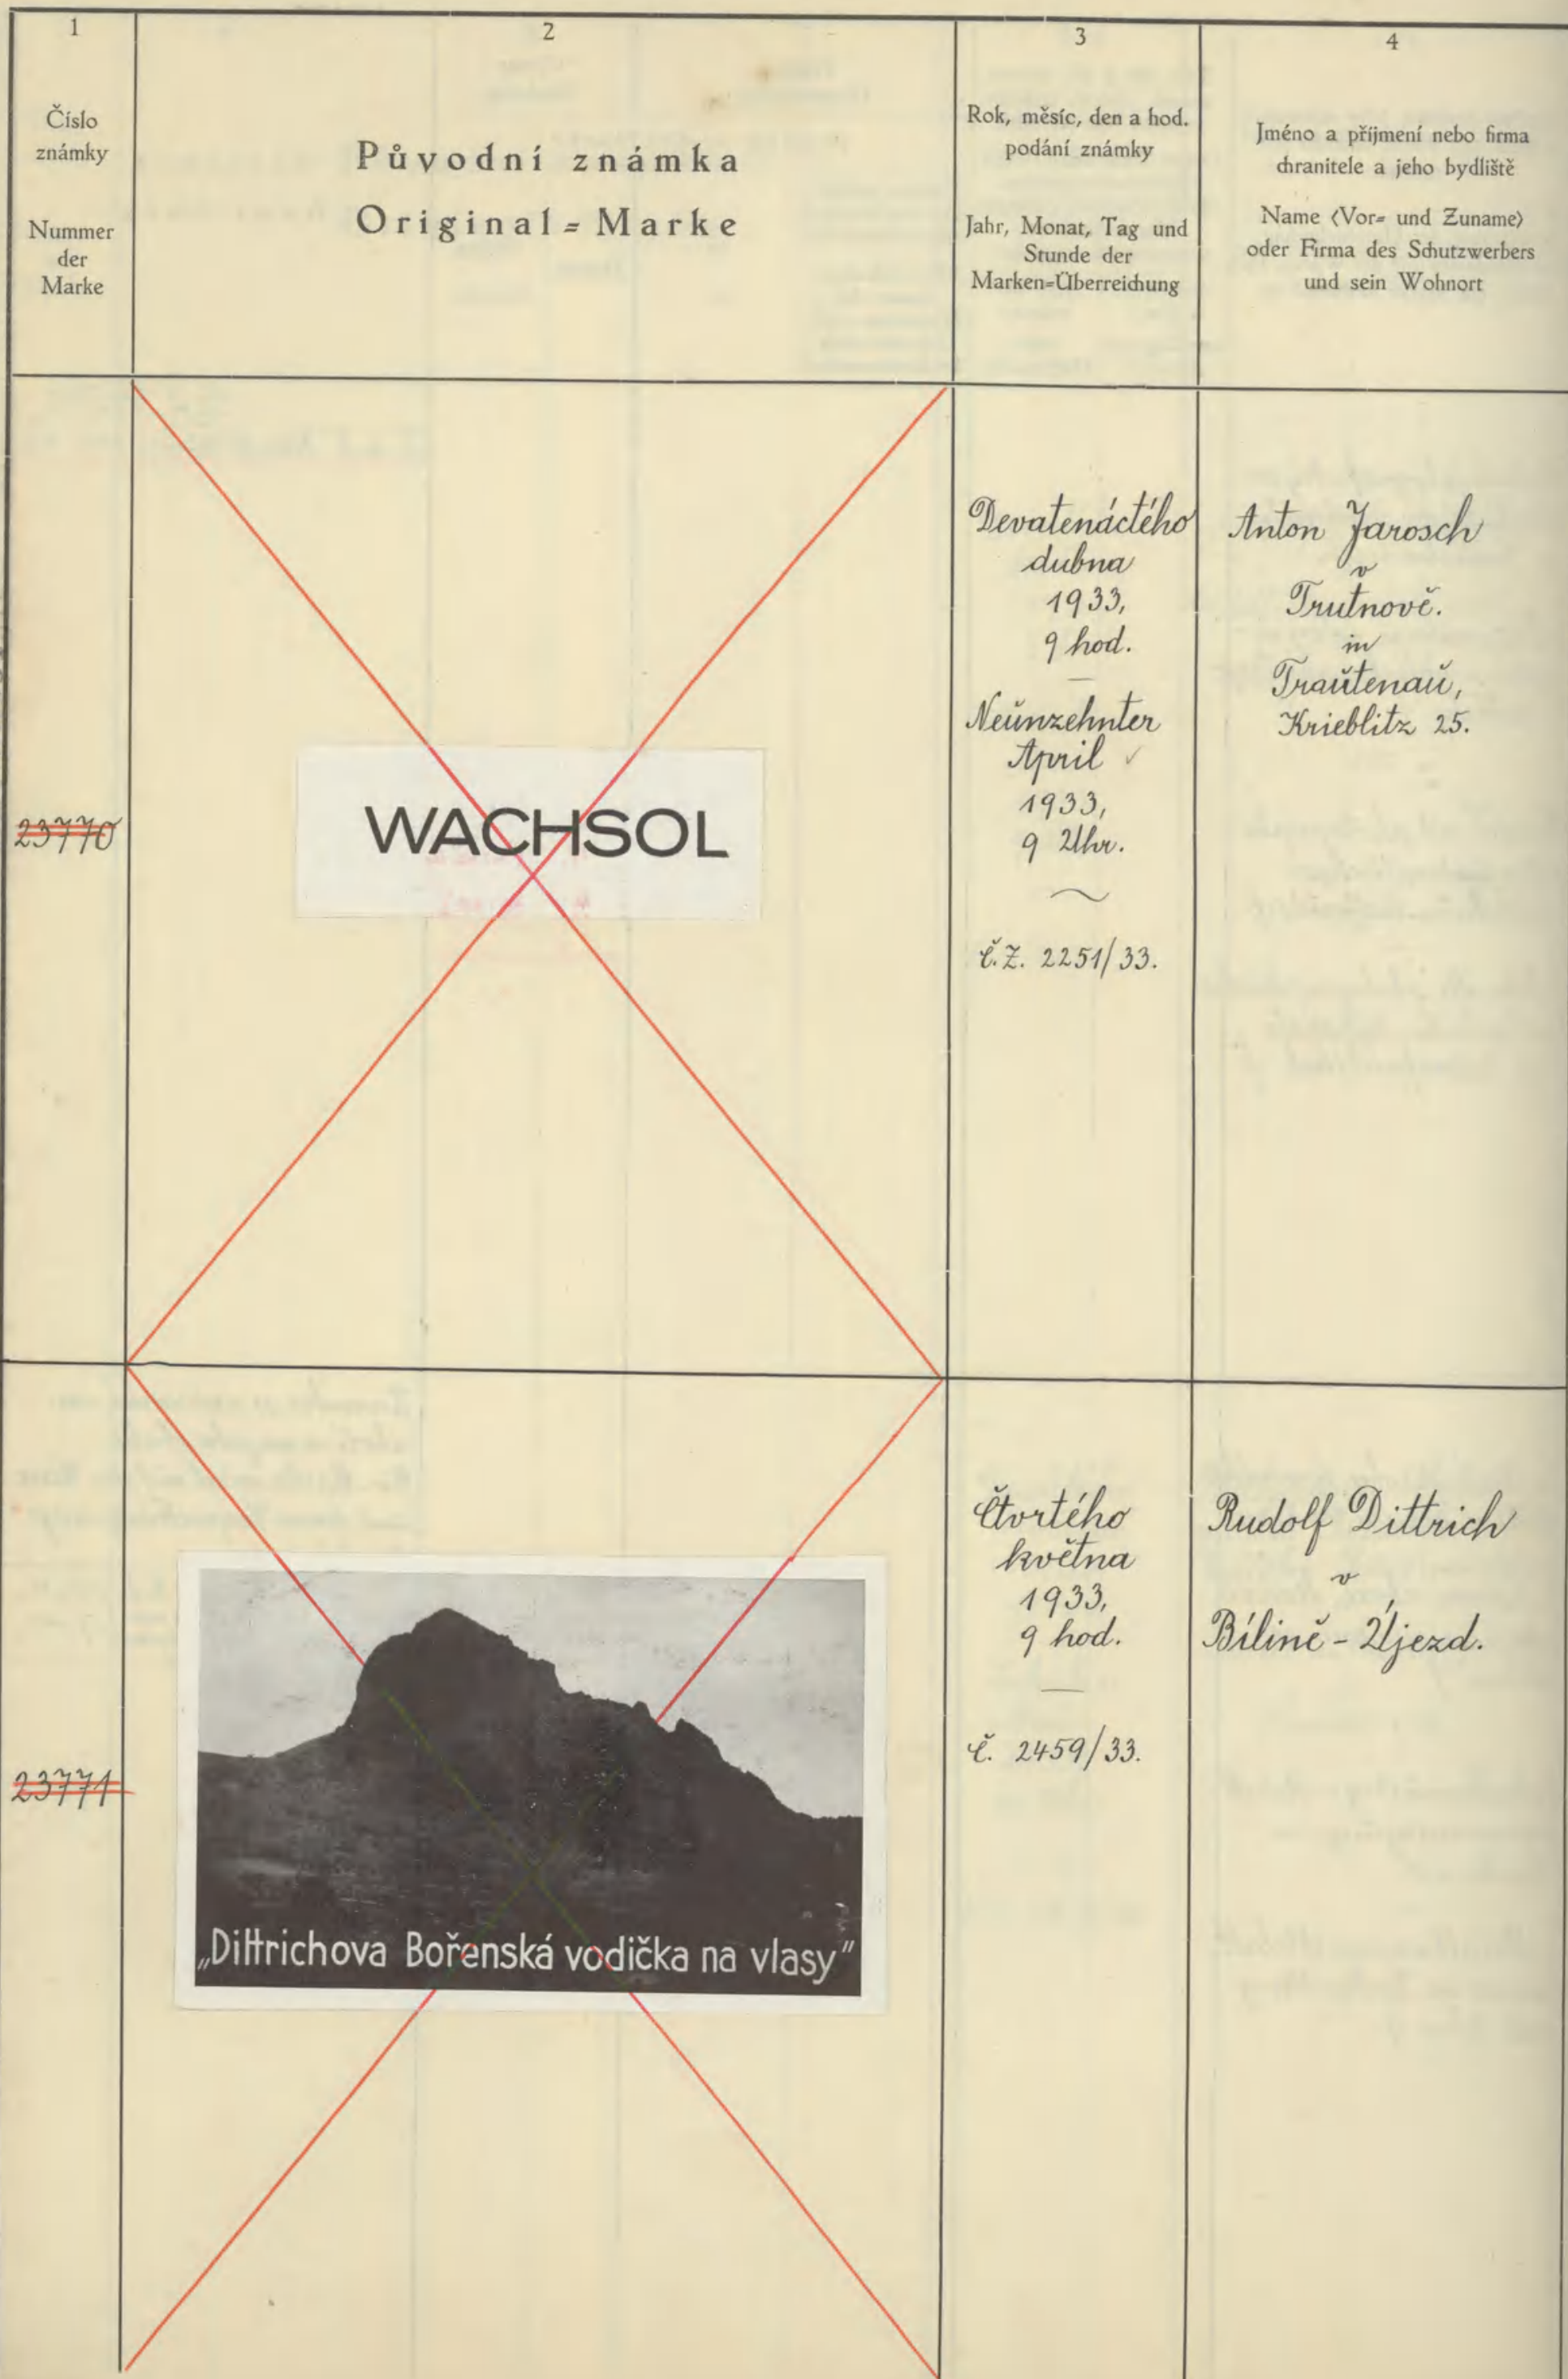 1
Číslo
známky
Nummer
der
Marke
2
Původní známka
Original=Marke
3
Rok, měsíc, den a hod.
podání známky
Jahr, Monat, Tag und
Stunde der
Marken=Überreichung
4
Jméno a příjmení nebo firma
chranitele a jeho bydliště
Name (Vor= und Zuname)
oder Firma des Schutzwerbers
und sein Wohnort
23770
WACHSOL
Devatenáctého
dubna
1933,
9 hod.
Neunzehnter
April
1933,
9 Uhr.
č.Z. 2251/33.
Anton Jarosch
v
Trutnově.
in
Trautenau,
Krieblitz 25.
23771
„Dittrichova Bořenská vodička na vlasy"
Čtvrtého
května
1933,
9 hod.
č. 2459/33.
Rudolf Dittrich
v
Bílině - Újezd.